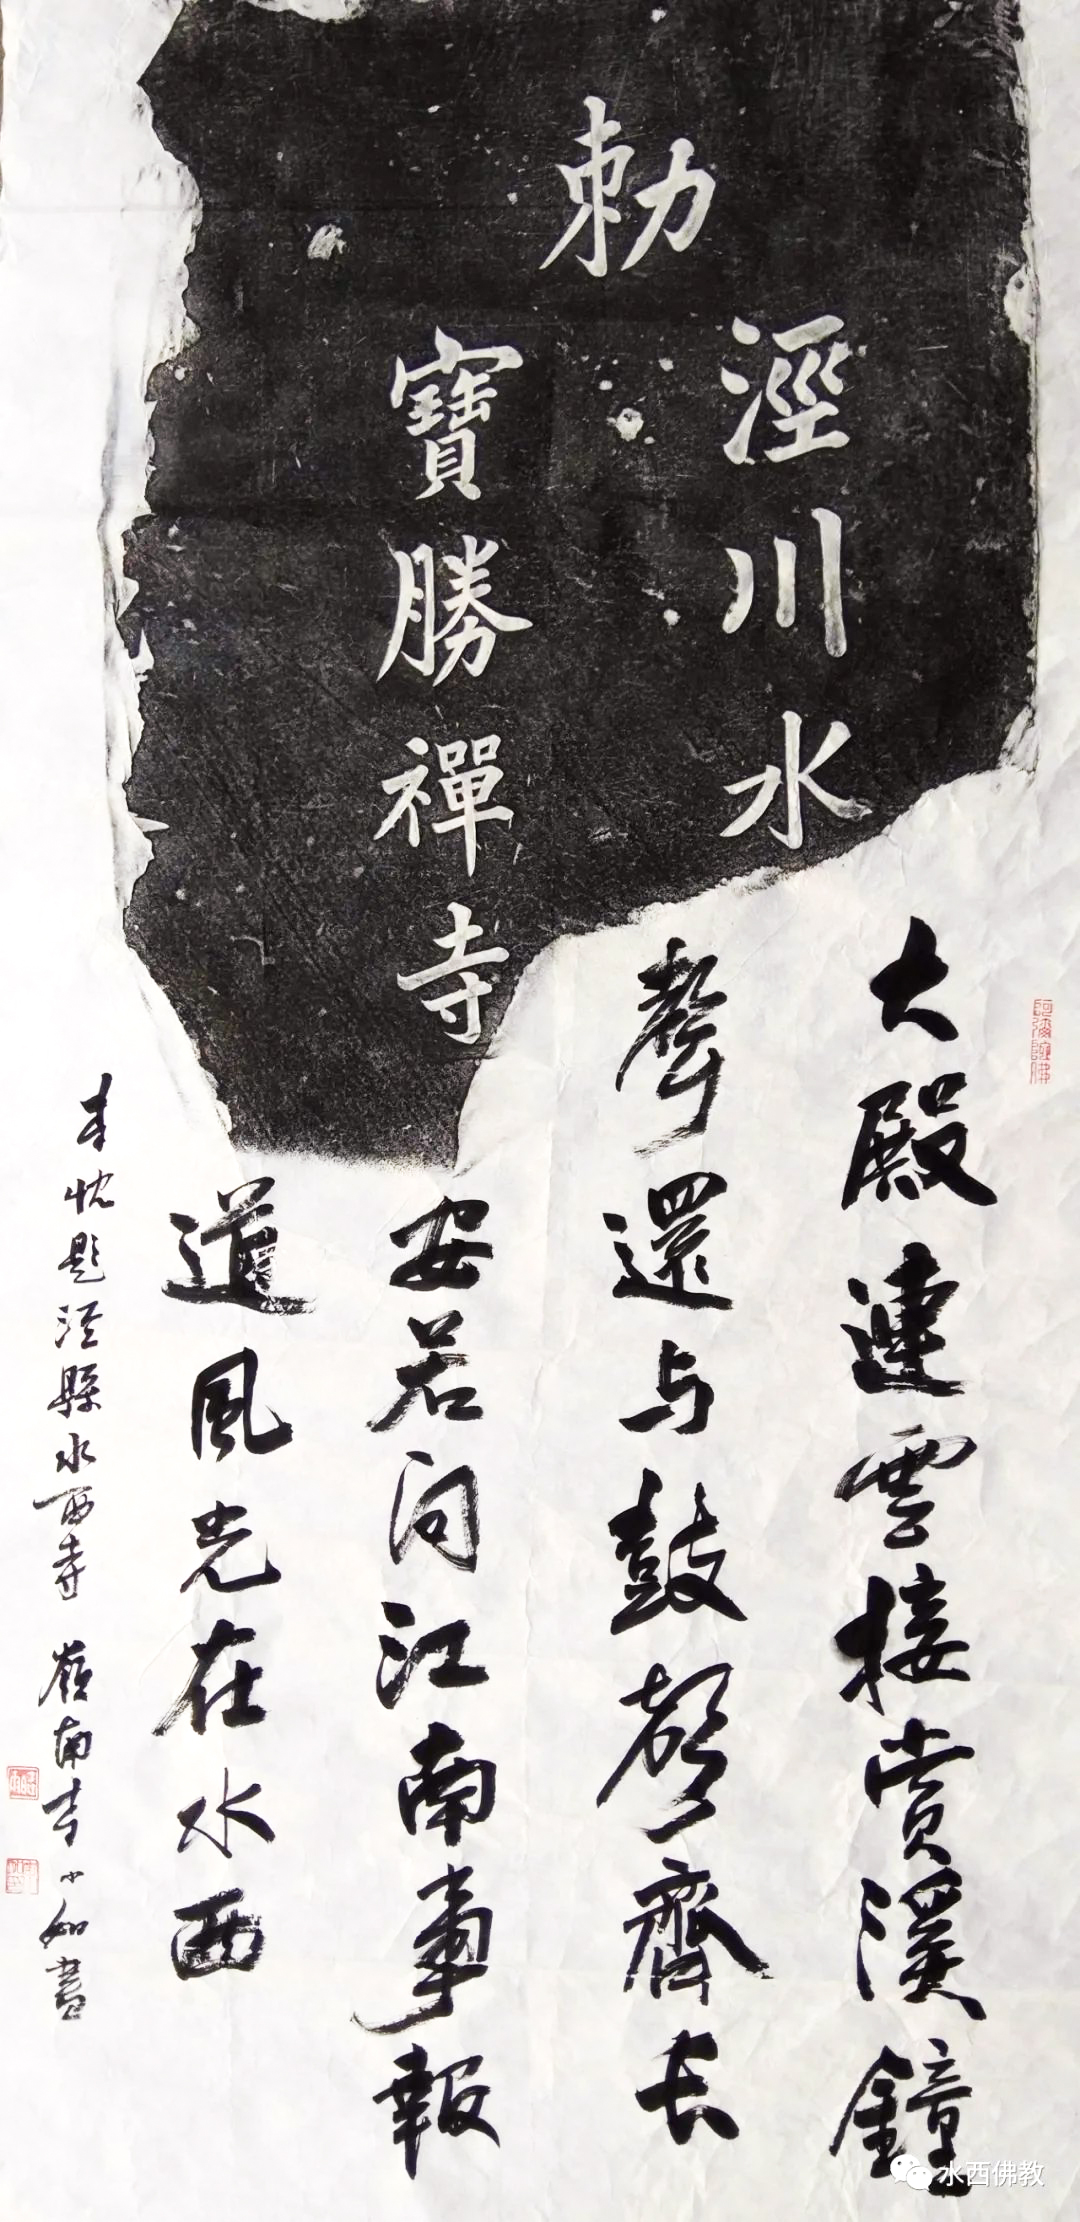 勅
涇川水
寶勝禪寺
大殿連雲接賞溪鐘
聲還与鼓聲齊長
安若问江南事報
道風光在水西
李忱題涇縣水西寺 嶺南李小如書
阿彌陀佛
水西佛教